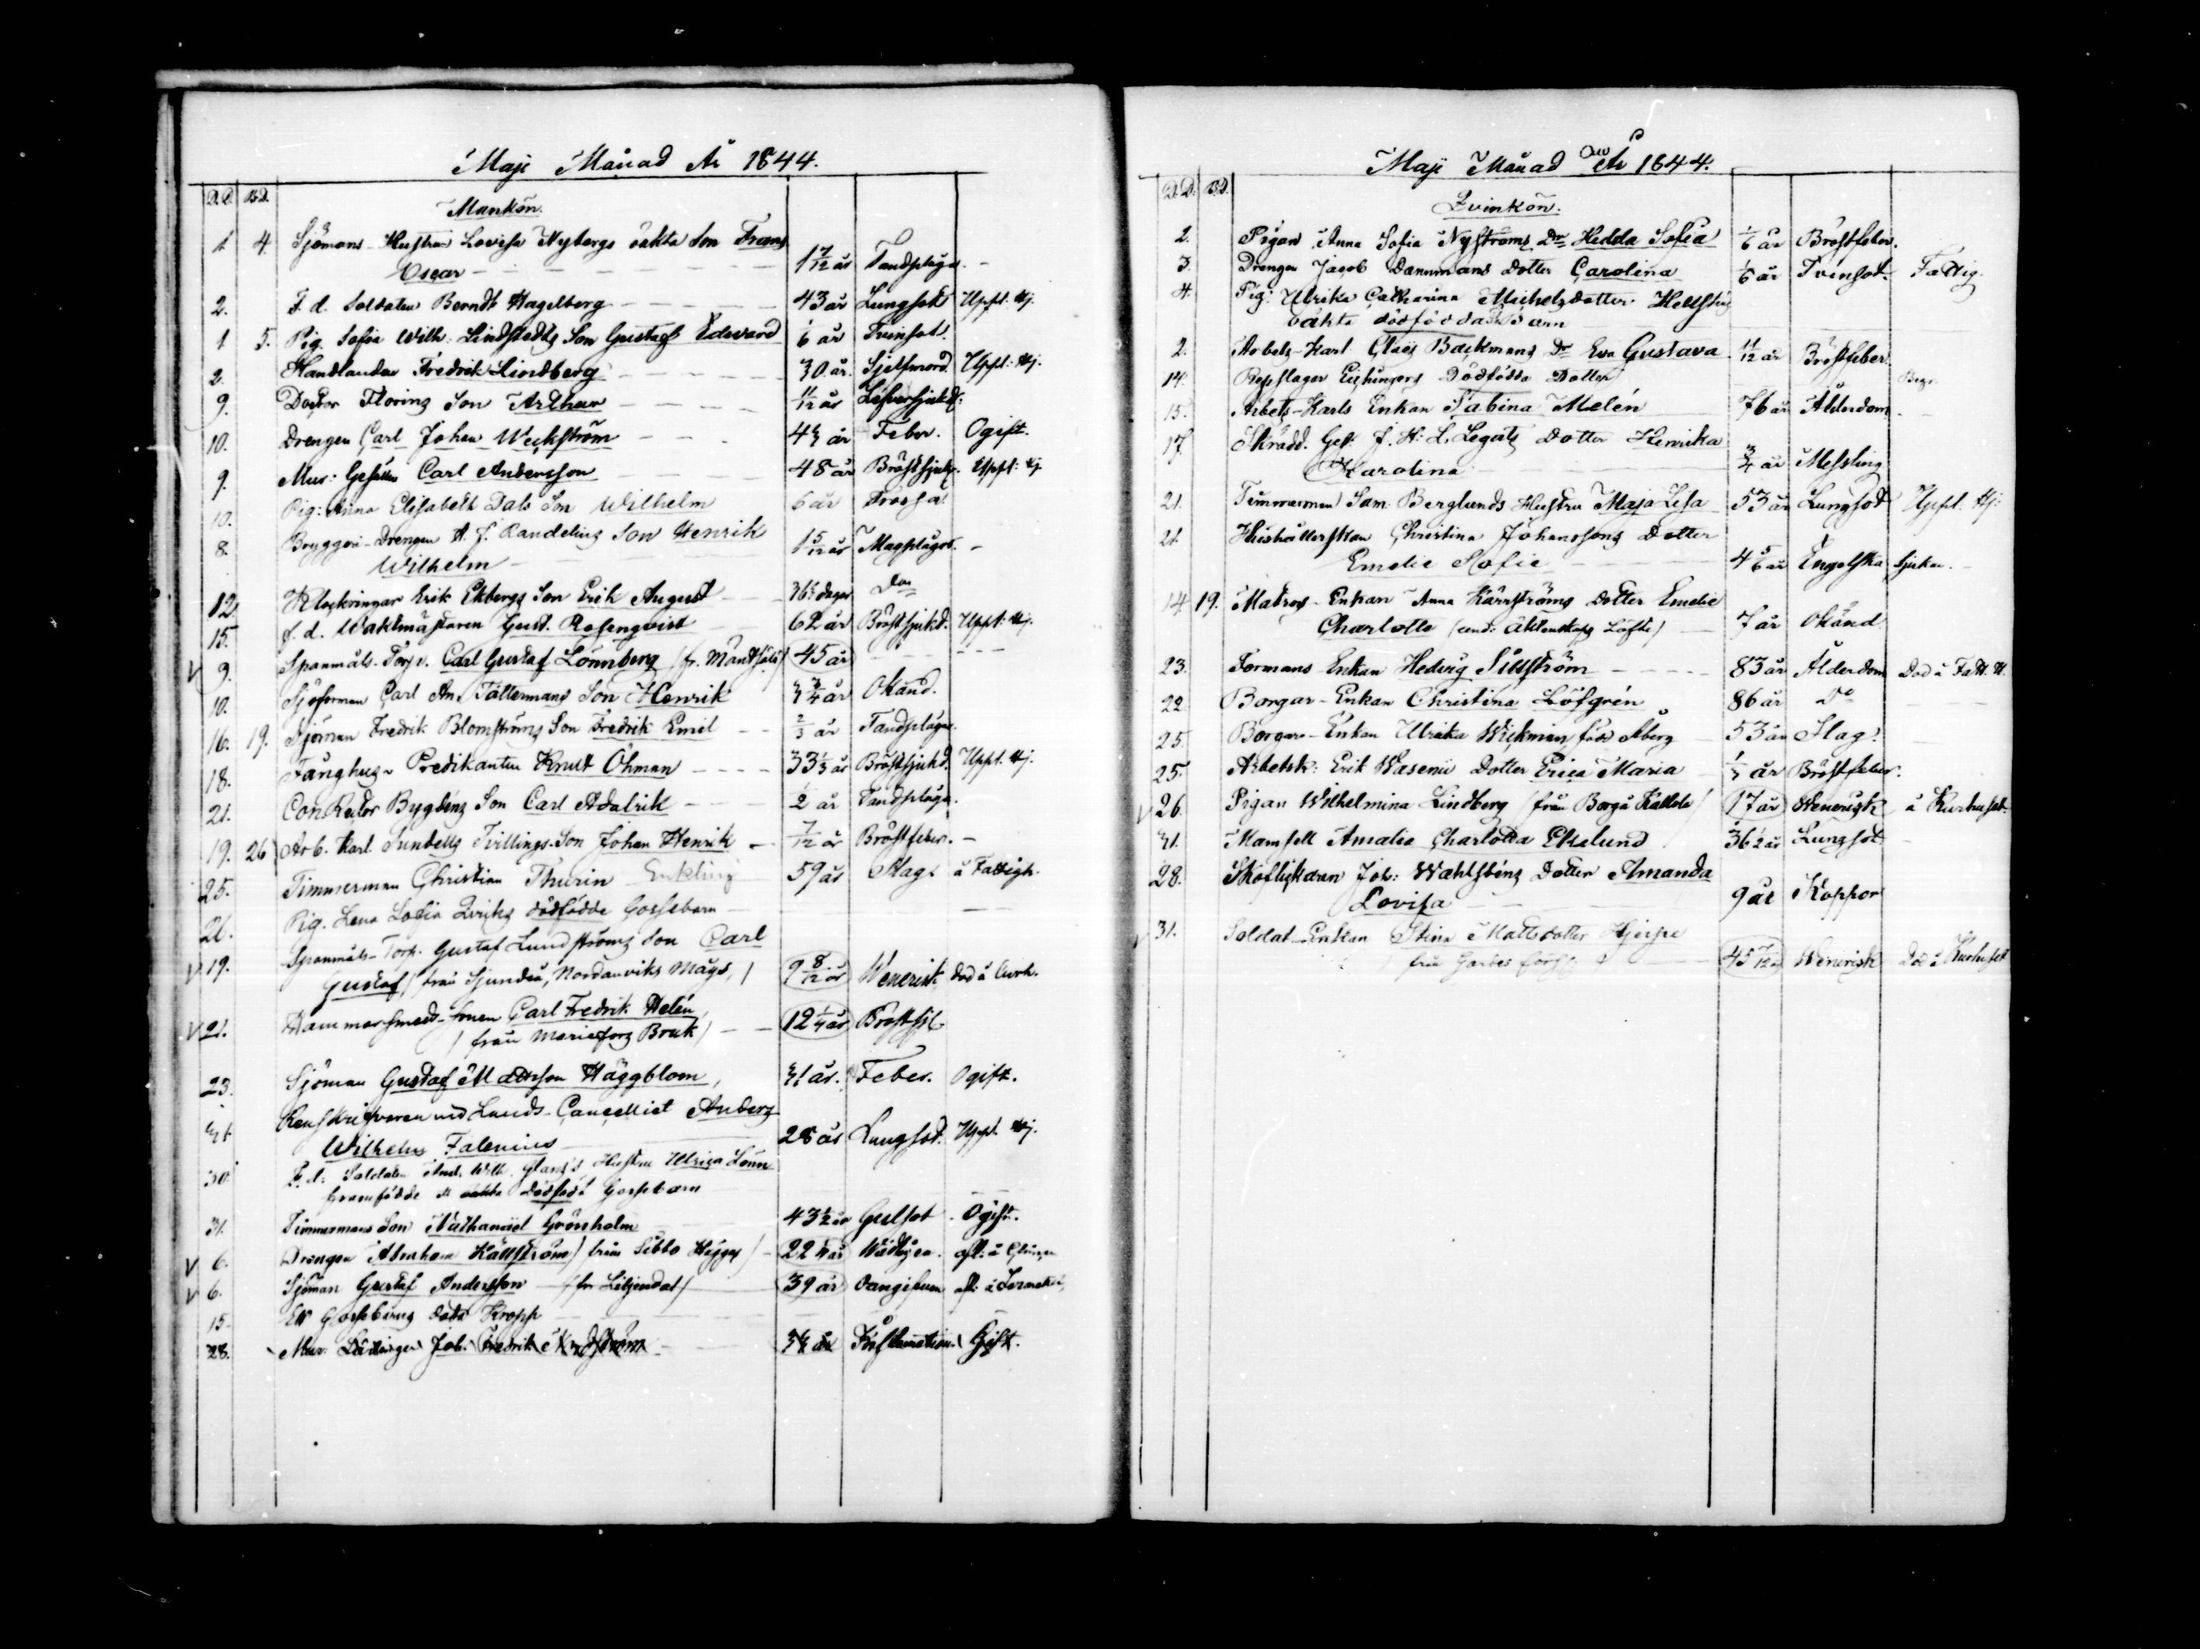 Maji Månad År 1844.
D.D. B.D.
Mankön.
1 4. Sjömans Hustrun Lovisa Nybergs oäkta Son Frans
Oscar 1 7/12 år Tandplågor. -
2. F. d. Soldaten Berndt Hagelberg 43 år Lungsot Uppl. Hj.
1 5. Pig. Sofia Wilh. Lindstedts Son Gustaf Edvard 1/6 år Tvinsot.
2. Handlanden Fredrik Lindberg 30 år. Sjelfmord. Uppl: Hj.
9. Doctor Florins Son Arthur 11/12 år Lefversjukd.
10. Drengen Carl Johan Weckström år Feber. Ogift.
9. Mur: Gesällen Carl Andersson 48 år Bröstsjukd. Uppl: Hj.
10. Pig: Anna Elisabeth Dals Son Wilhelm 6 år Frossa
8. Bryggeri-Drengen A. f. Randelins Son Henrik
Wilhelm 1 5/12 år Magplågor. -
12. Klockringar Erik Ekbergs Son Erik August dagar Do
15. f. d. Waktmästaren Gust. Rosenqvist 62 år Bröstsjukd. Uppl: Hj.
V 9. Spanmåls-Torp. Carl Gustaf Lönnberg (fr. Mäntsälä) 45 år
10. Sjöforman Carl An. Tallermans Son Henrik 3/4 år Okänd.
16. 19. Sjöman Fredrik Blomströms Son Fredrik Emil 2/3 år Tandplågor.
18. Fånghus Predikanten Knut Öhman 33 1/3 år Bröstsjukd. Uppl. Hj.
21. Con Rector Bygdéns Son Carl Adalrik 1/2 år Tandplågor.
19. 26 Arb. Karl Sunbells Tvillings-Son Johan Henrik 7/12 år Bröstfeber. -
25. Timmerman Christian Thurin Enkling 59 år Slag å Fattigh.
26. Pig. Lena Lovisa Qviks dödfödde Gossebarn
V 19. Spanmåls-Torp. Gustaf Lundströms Son Carl
Gustaf (från Sjundeå, Nordanviks Mågs,) 9 8/12 år Wenerisk död å Curh.
V 21. Hammarsmeds-Sonen Carl Fredrik Helén
(från Mariefors Bruk) 12 1/4 år Bröstsj.
23. Sjöman Gustaf Mattsson Häggblom, år. Feber. Ogift.
Renskrifvaren vid Lands-Cancelliet Anders
Wilhelm Falenius 28 år Lungsot. Uppl. Hj.
30. F. d. Soldaten And. Wilh. Glans's Hustru Ulrica Lönn
framfödde Gossebarn
31. Timmermans Son Nathanael Grönholm 43 1/2 år Gulsot Ogift.
V 6. Drengen Abraham Källström (från Sibbo Hägges) 22 år Wådligen.
V 6. Sjöman Gustaf Andersson (fr. Liljendal) 39 år
15. Ett Gossebarns döda Kropp
28. Mur. Lärlingen Joh. Fredrik år Inflamation. Gift.
Maji Månad År 1844.
D.D. B.D.
Qvinkön.
2. Pigan Anna Sofia Nyströms Dr Hedda Sofia 1/6 år Bröstfeber.
3. Drengen Jacob Dannmans dotter Carolina 1/6 år Tvinsot. Fattig.
4. Pig: Ulrika Catharina Michelsdotter Hellsten
oäkta dödfödda Barn
2. Arbets-Karl Claës Backmans Dr Eva Gustava 11/12 år Bröstfeber.
14. Repslagar Dödfödda Dotter Begr.
15. Arbets-Karls Enkan Sabina Melén 76 år Ålderdom. -
17. Skrädd. Ges: f. H. L. Legats Dotter Henrika
Carolina 3/4 år Messling
21. Timmerman Sam. Berglunds Hustru Maja Lisa 53 år Lungsot Uppl. Hj.
21. Hushållerskan Christina Johanssons Dotter
Emelie Sofie 4 5/6 år Engelska Sjukan.
14 19. Matros-Enkan Anna Kärrströms Dotter Emelie
Charlotte (und: Äktenskaps Löfte) 7 år Okänd
23. Formans Enkan Hedvig Sillström 83 år Ålderdom Död å Fatt. H.
22 Borgar-Enkan Christina Löfgrén 86 år Do
25. Borgare-Enkan Ulrika Wickman född Åberg 53 år Slag.
25. Arbetsk: Erik Wasenii Dotter Erica Maria år Bröstfeber.
V 26. Pigan Wilhelmina Lindberg (från Borgå Kallola) 17 år Wenerisk å Kurhuset.
31. Mamsell Amalia Charlotta Ekelund 36 1/2 år Lungsot -
28. Skoflickaren Joh: Wahlsténs Dotter Amanda
Lovisa 9 år Koppor
V 31. Soldat-Enkan Stina Mattsdotter Hjerpe
från 45 7/12 år Wenerisk Död å Kurhuset